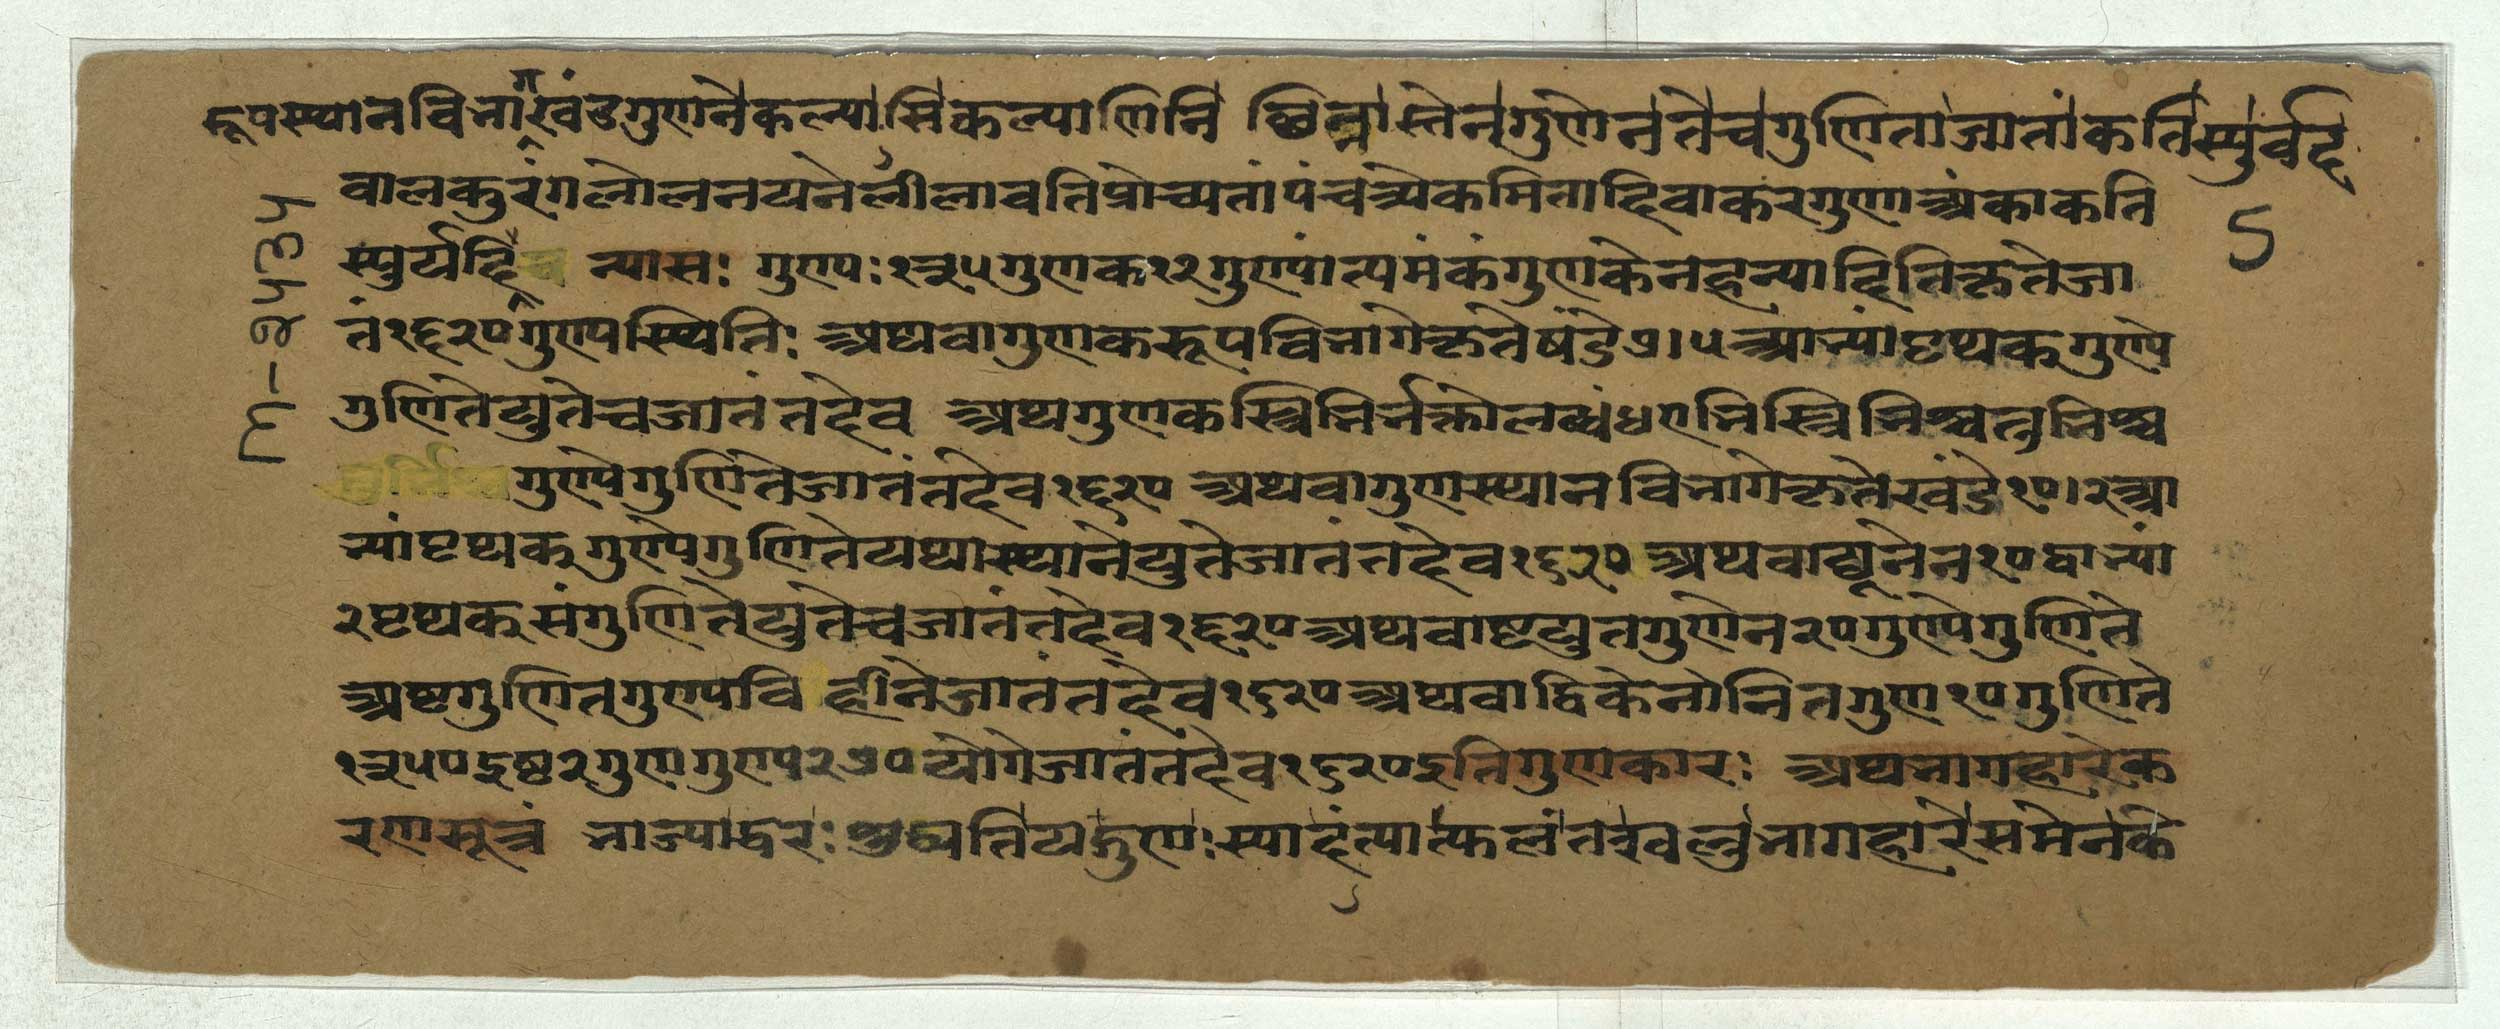 रूपस्थानविभागखंडगुणनेकल्यासिकल्याणिनि छिन्नास्तेनगुणेनतेचगुणिताजाताःकतिस्युर्वद
बालकुरंगलोलनयनेलीलावतिप्रोच्यतांपंचत्र्येकमितादिवाकरगुणाअंकाकति
स्युर्यदि न्यासः गुण्यः१३५गुणक१२गुण्यांत्यमंकंगुणकेनहन्यादितिकृतेजा
तं१६२०गुण्यस्थितिः अथवागुणकरूपविभागेकृतेषंडे८।४आभ्यांपृथक्गुण्ये
गुणितेयुतेचजातंतदेव अथगुणकस्त्रिभिर्भक्तोलब्धं४एभिस्त्रिभिश्च
गुण्येगुणितेजातंतदेव१६२० अथवागुणस्थानविभागेकृतेखंडे१०।२आ
भ्यांपृथक्गुण्येगुणितेयथास्थानेयुतेजातंतदेव१६२० अथवाद्व्यूनेन१०द्वाभ्यां
२पृथक्संगुणितेयुतेचजातंतदेव१६२०अथवाष्टयुतगुणेन२०गुण्येगुणिते
अष्टगुणितगुण्यविहीनेजातंतदेव१६२०अथवाद्विकेनोनितगुण१०गुणिते
१३५०द्वष्ट२गुणगुण्य२७०योगेजातंतदेव१६२०इतिगुणकारः अथभागहारेक
रणसूत्रं भाज्याद्धरःशुध्यतियद्गुणःस्यादंत्यात्फलंतत्खलुभागहारेसमेनके
५